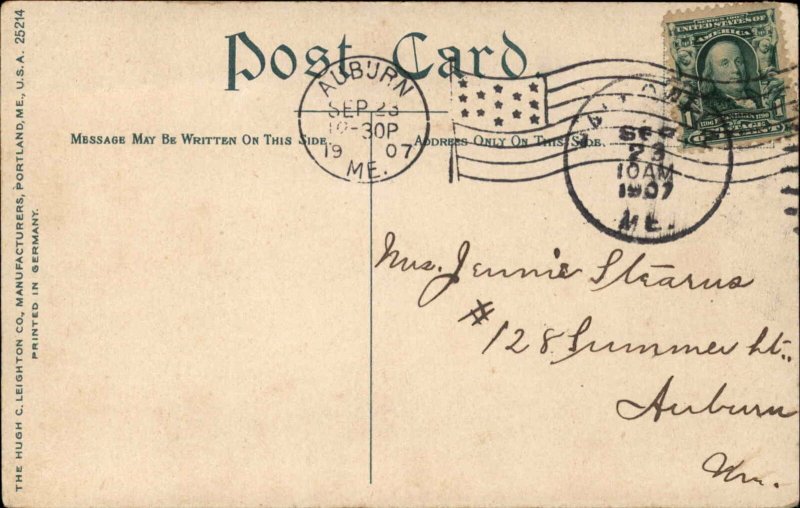 THE HUGH C. LEIGHTON CO., MANUFACTURERS, PORTLAND, ME., U.S.A. 25214
PRINTED IN GERMANY.
Post Card.
MESSAGE MAY BE WRITTEN ON THIS SIDE.
ADDRESS ONLY ON THIS SIDE.
AUBURN
SEP 23
-30P
19 07
ME.
SEP
23
10AM
1907
ME.
SERIES 1902
UNITED STATES OF
AMERICA
Mrs. Jennie Stearns
#128 Summer St.,
Auburn
Me.